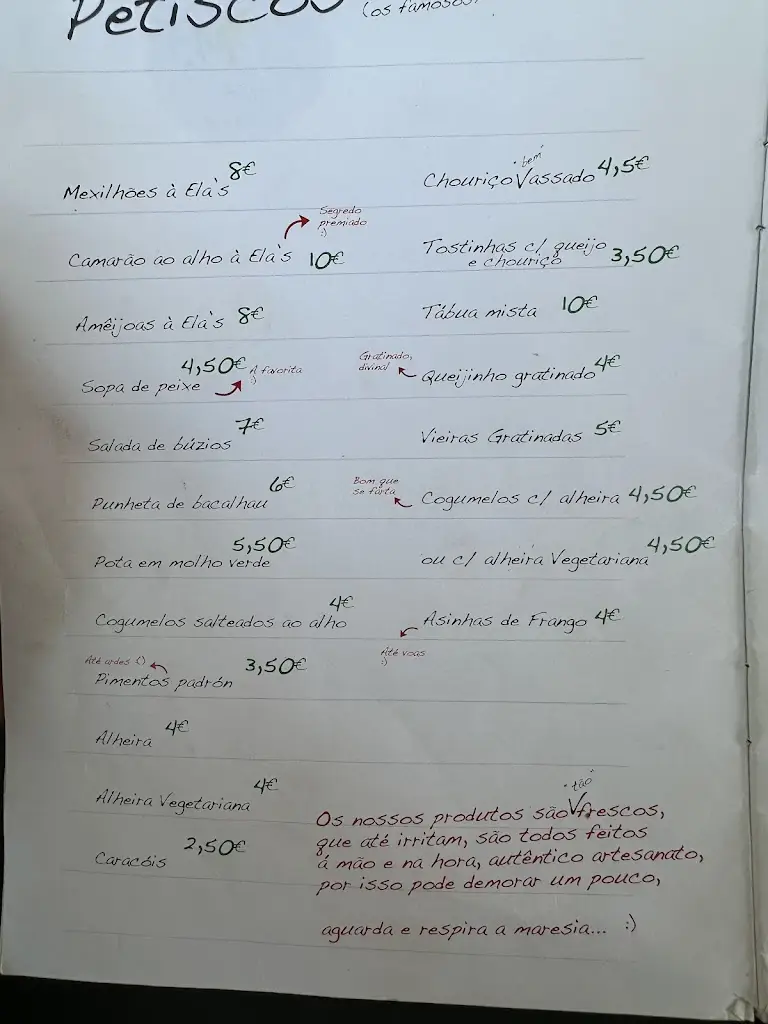 Petiscos (os famosos)
Mexilhões à Ela's 8€
Segredo
premiado
:)
Camarão ao alho à Ela's 10€
Amêijoas à Ela's 8€
Sopa de peixe 4,50€
A favorita
:)
Salada de búzios 7€
Punheta de bacalhau 6€
Pota em molho verde 5,50€
Cogumelos salteados ao alho 4€
Até ardes :()
Pimentos padrón 3,50€
Alheira 4€
Alheira Vegetariana 4€
Caracóis 2,50€
Chouriço bem Vassado 4,5€
Tostinhas c/ queijo
e chouriço 3,50€
Tábua mista 10€
Gratinado,
divinal
Queijinho gratinado 4€
Vieiras Gratinadas 5€
Bom que
se farta
Cogumelos c/ alheira 4,50€
ou c/ alheira Vegetariana 4,50€
Asinhas de Frango 4€
Até voas
:)
Os nossos produtos são tão frescos,
que até irritam, são todos feitos
á mão e na hora, autêntico artesanato,
por isso pode demorar um pouco,
aguarda e respira a maresia... :)